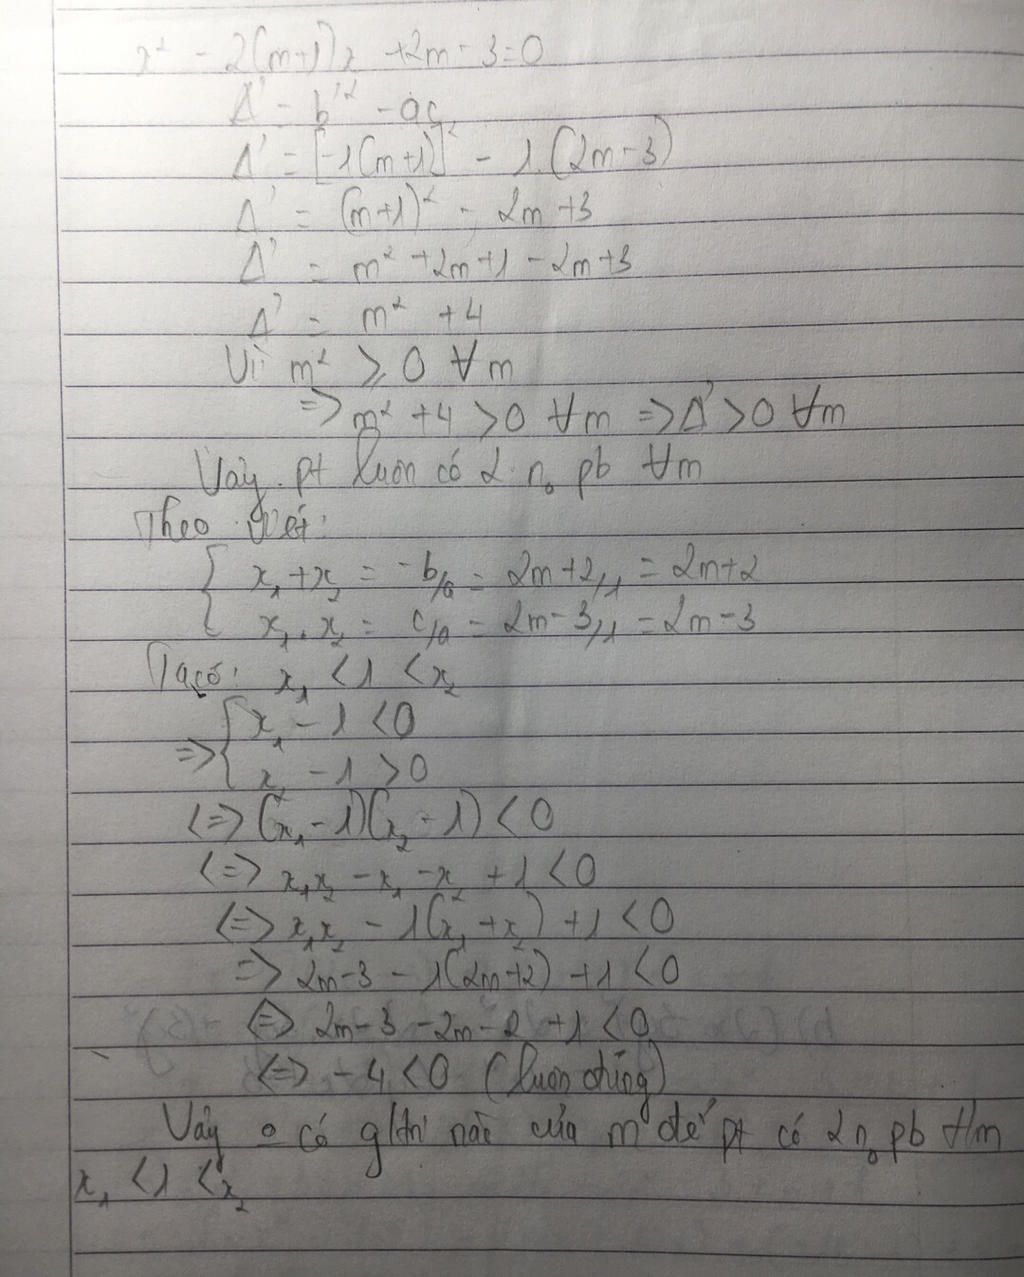 x² - 2(m+1)x +2m - 3=0
Δ' = b'² - ac
Δ' = [-1(m+1)]² - 1.(2m-3)
Δ' = (m+1)² - 2m +3
Δ' = m² +2m+1 -2m+3
Δ' = m² +4
Vì m² ≥ 0 ∀m
=> m² +4 >0 ∀m => Δ' >0 ∀m
Vậy pt luôn có 2 n₀ pb ∀m
Theo Viét:
{ x₁ +x₂ = -b/a = 2m+2/1 = 2m+2
x₁ . x₂ = c/a = 2m-3/1 = 2m-3
Ta có: x₁ <1 <x₂
=> { x₁ - 1 <0
x₂ - 1 >0
<=> (x₁ -1)(x₂ -1) <0
<=> x₁x₂ -x₁ -x₂ +1 <0
<=> x₁x₂ - 1(x₁ +x₂) +1 <0
=> 2m-3 - 1(2m+2) +1 <0
<=> 2m-3 -2m-2 +1 <0
<=> -4 <0 (luôn đúng)
Vậy o có g/trị nào của m để pt có 2 n₀ pb ∀m
x₁ <1 <x₂